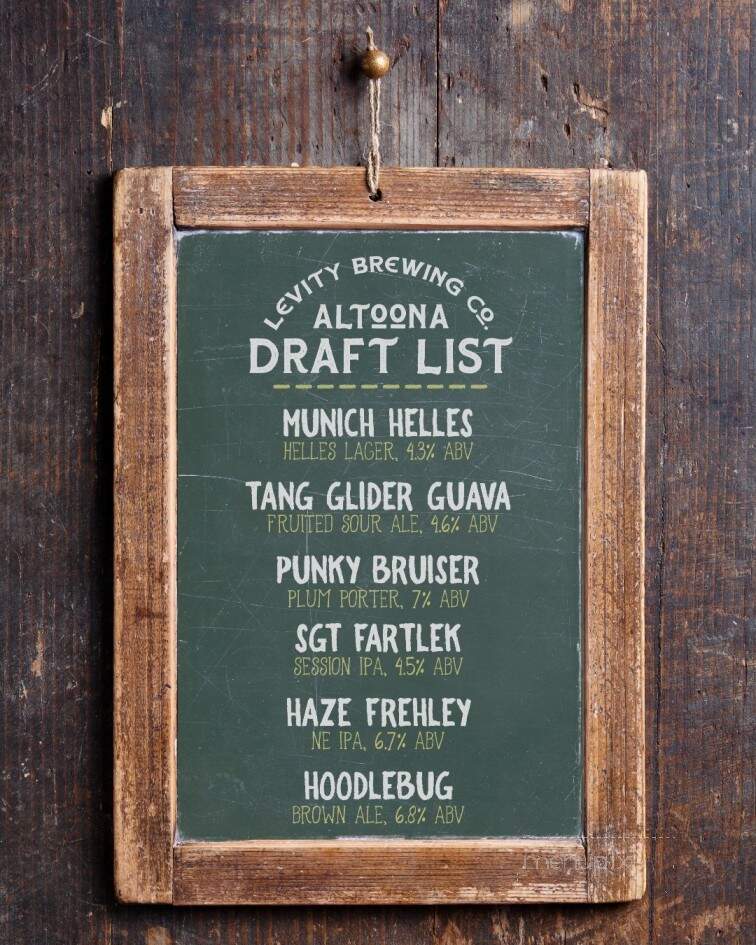 LEVITY BREWING CO.
ALTOONA
DRAFT LIST
MUNICH HELLES
HELLES LAGER, 4.3% ABV
TANG GLIDER GUAVA
FRUITED SOUR ALE, 4.6% ABV
PUNKY BRUISER
PLUM PORTER, 7% ABV
SGT FARTLEK
SESSION IPA, 4.5% ABV
HAZE FREHLEY
NE IPA, 6.7% ABV
HOODLEBUG
BROWN ALE, 6.8% ABV